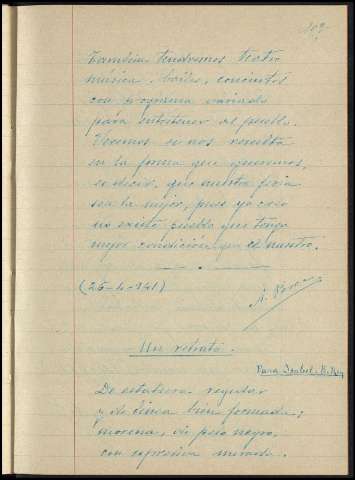 109
También tendremos teatro
música, bailes, concientos
con programa variado
para entretener al pueblo.
Veremos si nos resulta
en la forma que queremos,
es decir, que nuestra feria
sea la mejor, pues yo creo
no existe pueblo que tenga
mejor condición que el nuestro.
(26-4-941)
Un retrato.
Para Isabel. B.
De estatura regular
y de línea bien formada;
morena, de pelo negro,
con expresiva mirada.